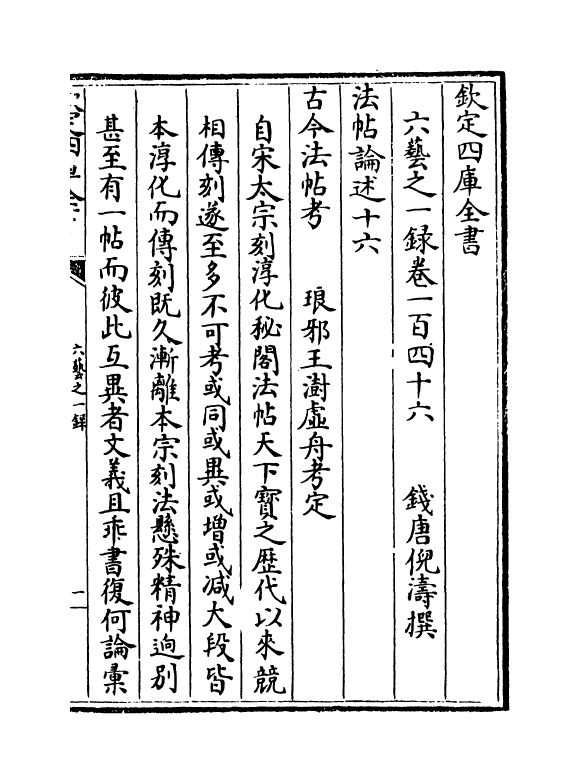 欽定四庫全書
六藝之一録卷一百四十六 錢唐倪濤撰
法帖論述十六
古今法帖考 琅邪王澍虛舟考定
自宋太宗刻淳化秘閣法帖天下寶之歴代以來競
相傳刻遂至多不可考或同或異或增或減大段皆
本淳化而傳刻既久漸離本宗刻法懸殊精神逈别
甚至有一帖而彼此互異者文義且乖書復何論彙
六藝之一録